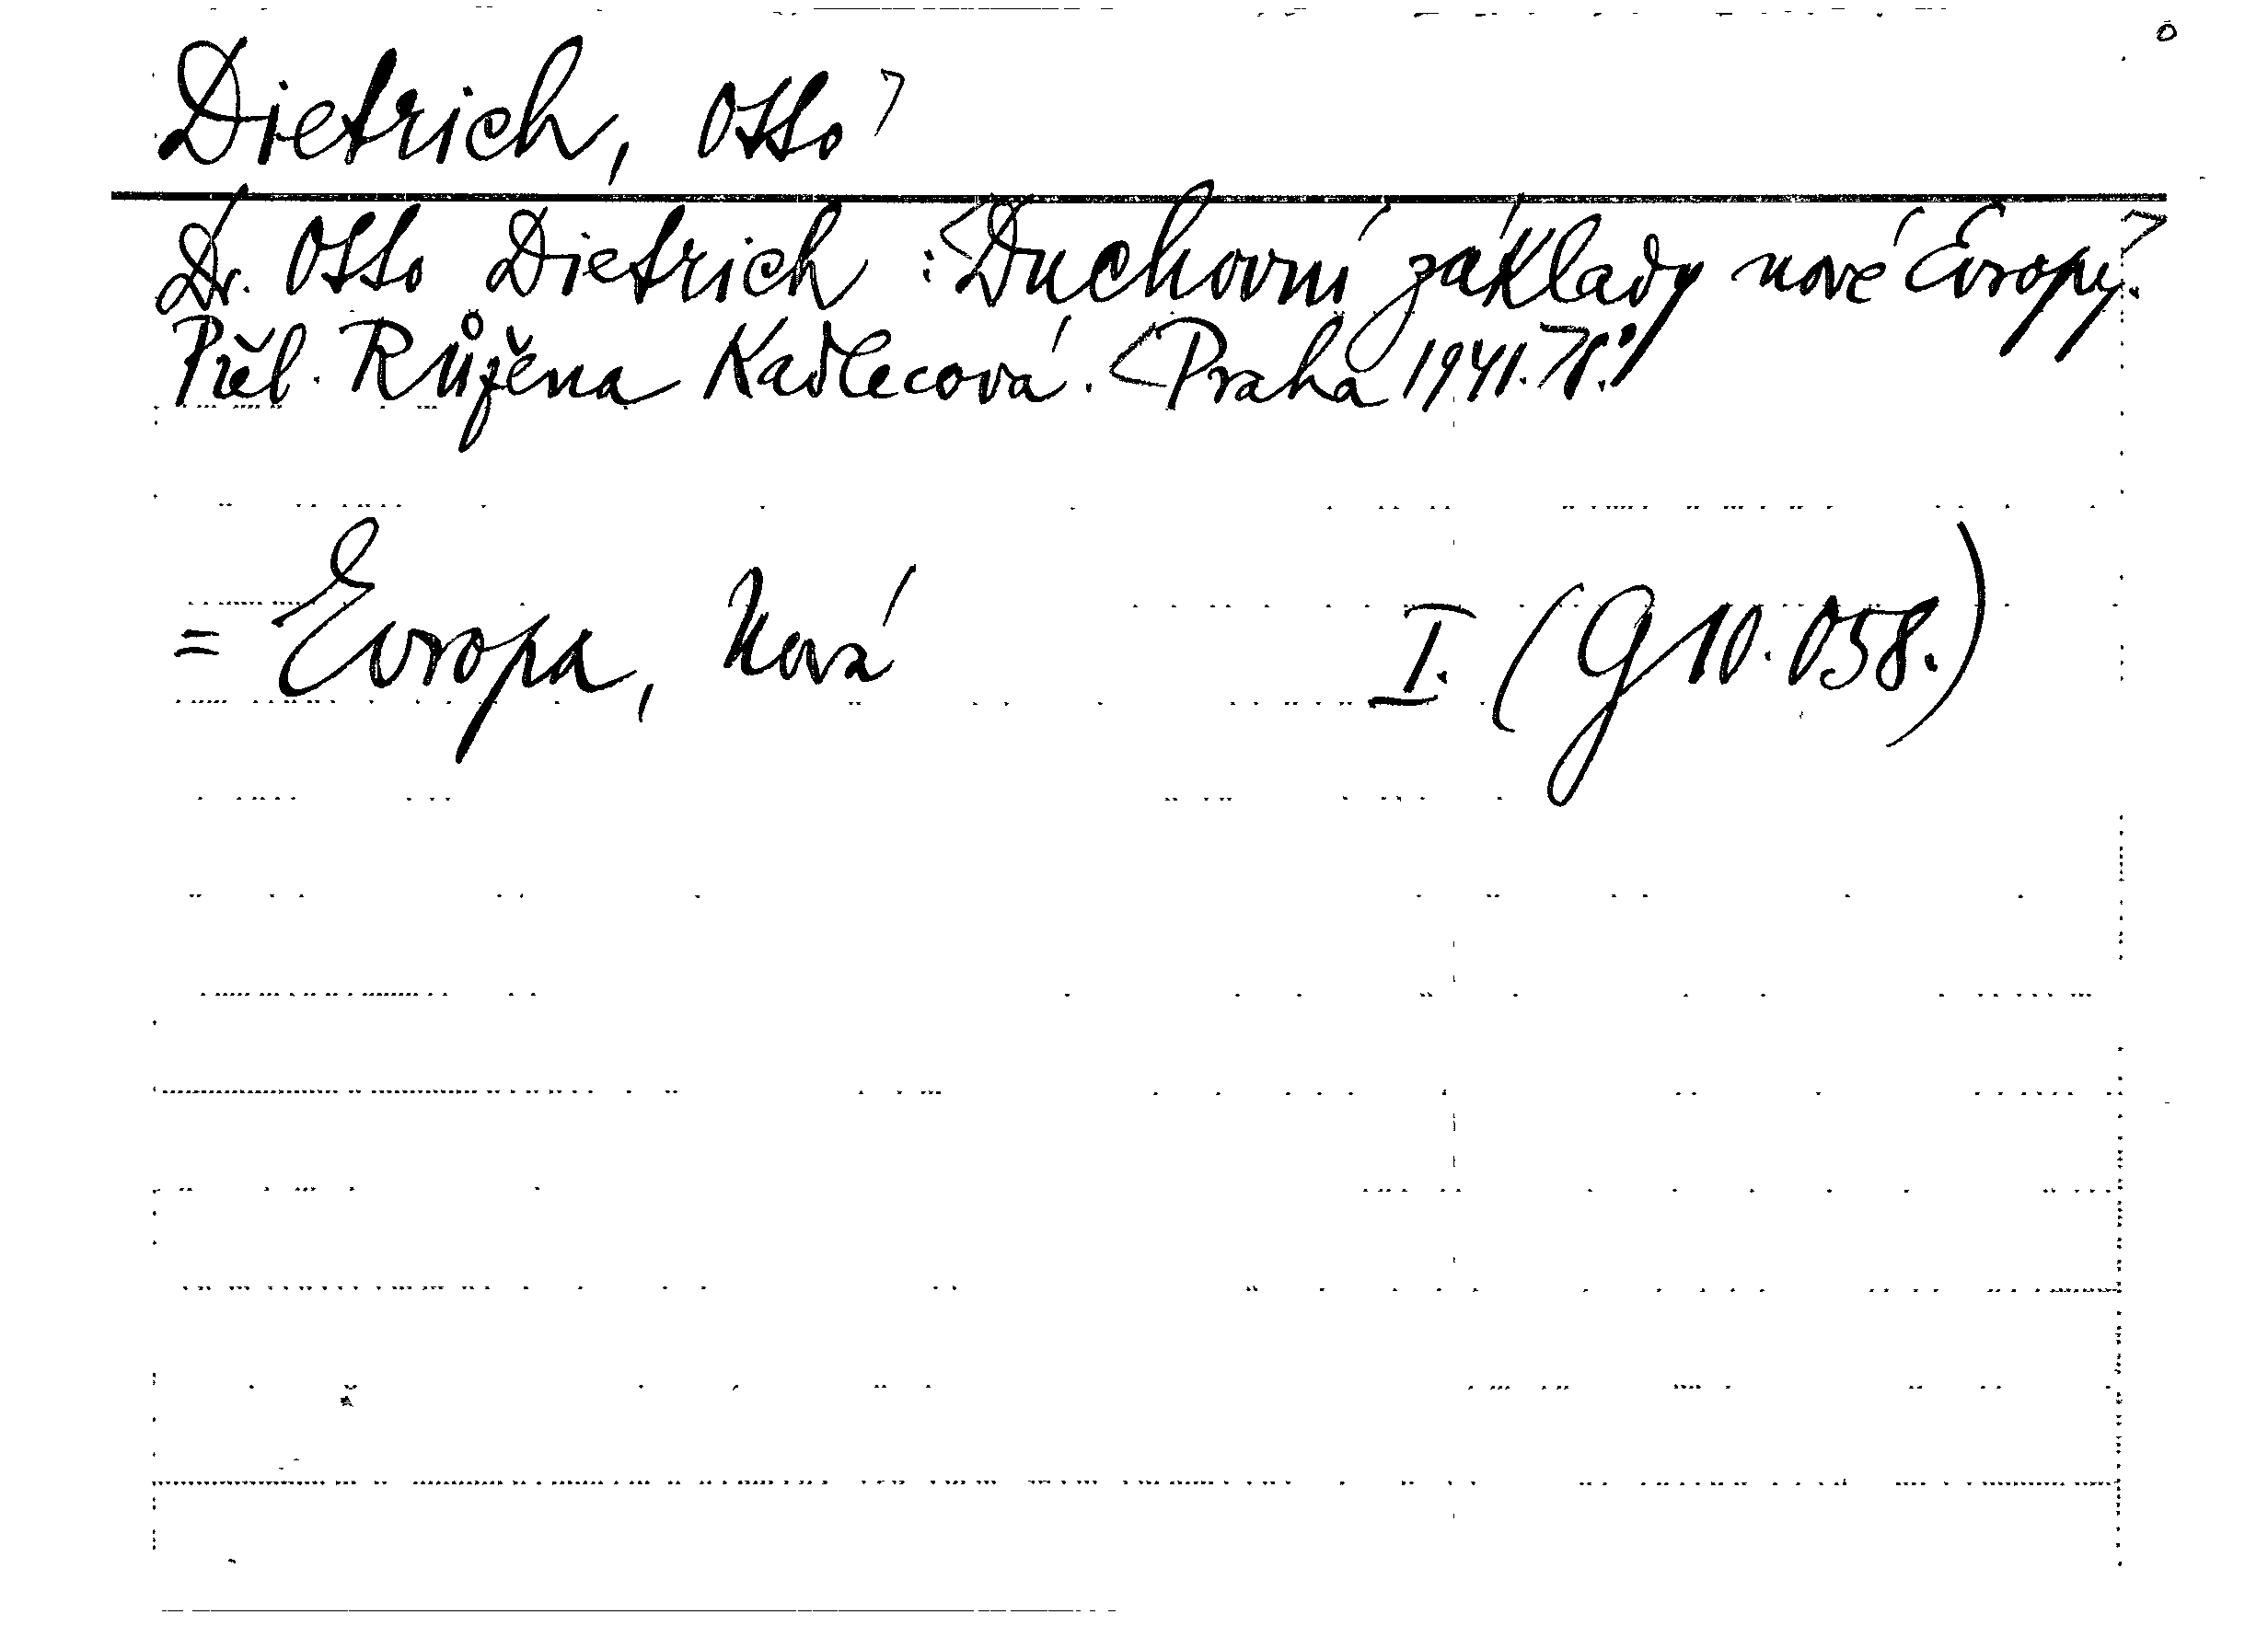 Dietrich, Otto
Dr. Otto Dietrich: Duchovní základy nové Evropy.
Přel. Růžena Kadlecová. Praha 1941.
= Evropa, Nová I. (G 10.058.)